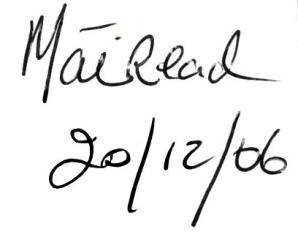 Máiread
20/12/06